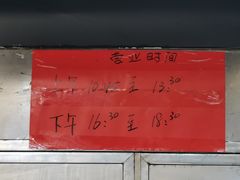 营业时间
上午 10:15 至 13:30
下午 16:30 至 18:30